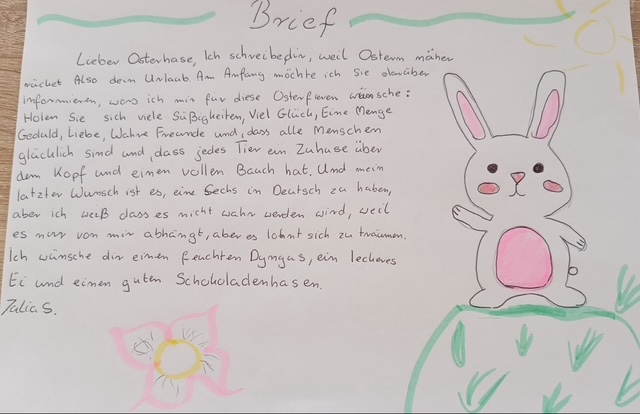 Brief
Lieber Osterhase, Ich schreibe dir, weil Ostern näher
rücket Also dein Urlaub. Am Anfang möchte ich Sie darüber
informieren, was ich mir für diese Osterfieren wünsche:
Holen Sie sich viele Süßigkeiten, Viel Glück, Eine Menge
Geduld, Liebe, Wahre Freunde und, dass alle Menschen
glücklich sind und, dass jedes Tier ein Zuhuse über
dem Kopf und einen vollen Bauch hat. Und mein
latzter Wunsch ist es, eine Sechs in Deutsch zu haben,
aber ich weiß dass es nicht wahr werden wird, weil
es nur von mir abhängt, aber es lohnt sich zu träumen.
Ich wünsche dir einen feuchten Dyngus, ein leckeres
Ei und einen guten Schokoladenhasen.
Julia S.